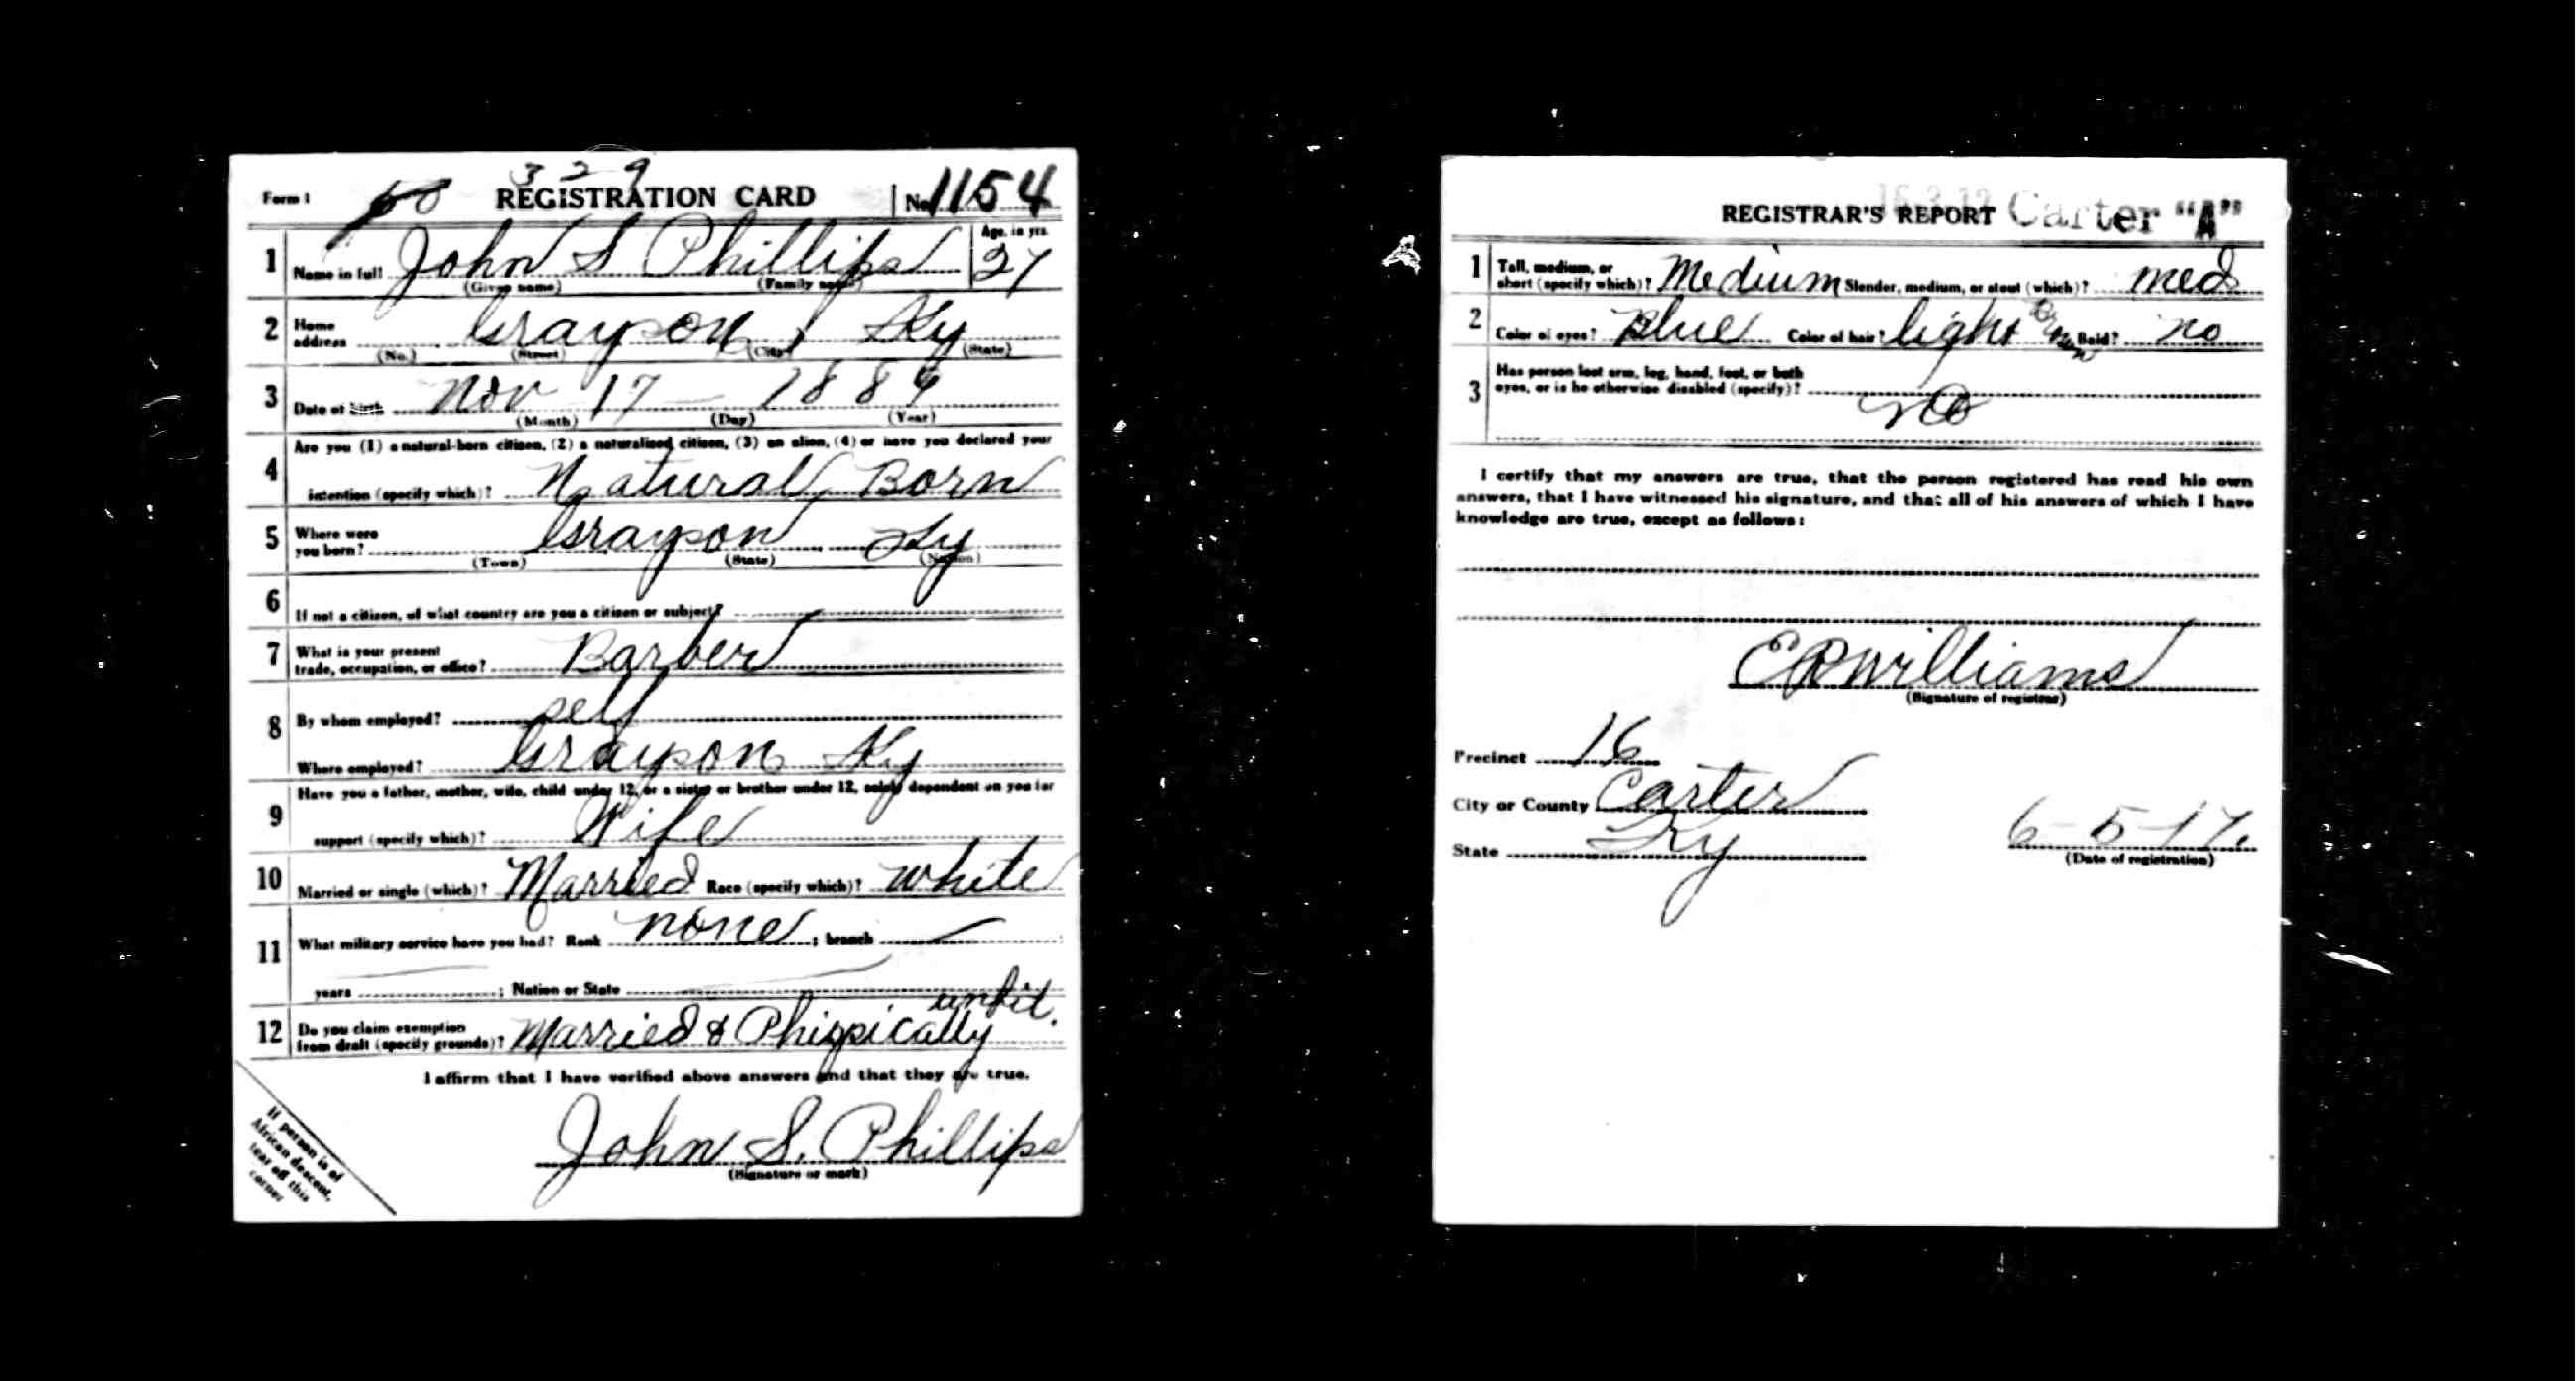 3 2 9
Form 1 REGISTRATION CARD No. 1154
1 Name in full John S Phillips Age, in yrs. 27
(Given name) (Family name)
2 Home address Grayson, Ky
(No.) (Street) (City) (State)
3 Date of birth Nov 17 - 1889
(Month) (Day) (Year)
4 Are you (1) a natural-born citizen, (2) a naturalized citizen, (3) an alien, (4) or have you declared your
intention (specify which)? Natural Born
5 Where were you born? Grayson Ky
(Town) (State) (Nation)
6 If not a citizen, of what country are you a citizen or subject?
7 What is your present trade, occupation, or office? Barber
8 By whom employed? self
Where employed? Grayson Ky
9 Have you a father, mother, wife, child under 12, or a sister or brother under 12, solely dependent on you for
support (specify which)? Wife
10 Married or single (which)? Married Race (specify which)? white
11 What military service have you had? Rank none ; branch —
years ; Nation or State
12 Do you claim exemption from draft (specify grounds)? Married & Phispically unfit.
I affirm that I have verified above answers and that they are true.
John S. Phillips
(Signature or mark)
If person is of
African descent,
tear off this
corner
REGISTRAR'S REPORT Carter "A"
1 Tall, medium, or short (specify which)? Medium Slender, medium, or stout (which)? med
2 Color of eyes? Blue Color of hair? light Brown Bald? no
3 Has person lost arm, leg, hand, foot, or both
eyes, or is he otherwise disabled (specify)?
no
I certify that my answers are true, that the person registered has read his own
answers, that I have witnessed his signature, and that all of his answers of which I have
knowledge are true, except as follows:
E R Williams
(Signature of registrar)
Precinct 16
City or County Carter
State Ky
6-5-17.
(Date of registration)